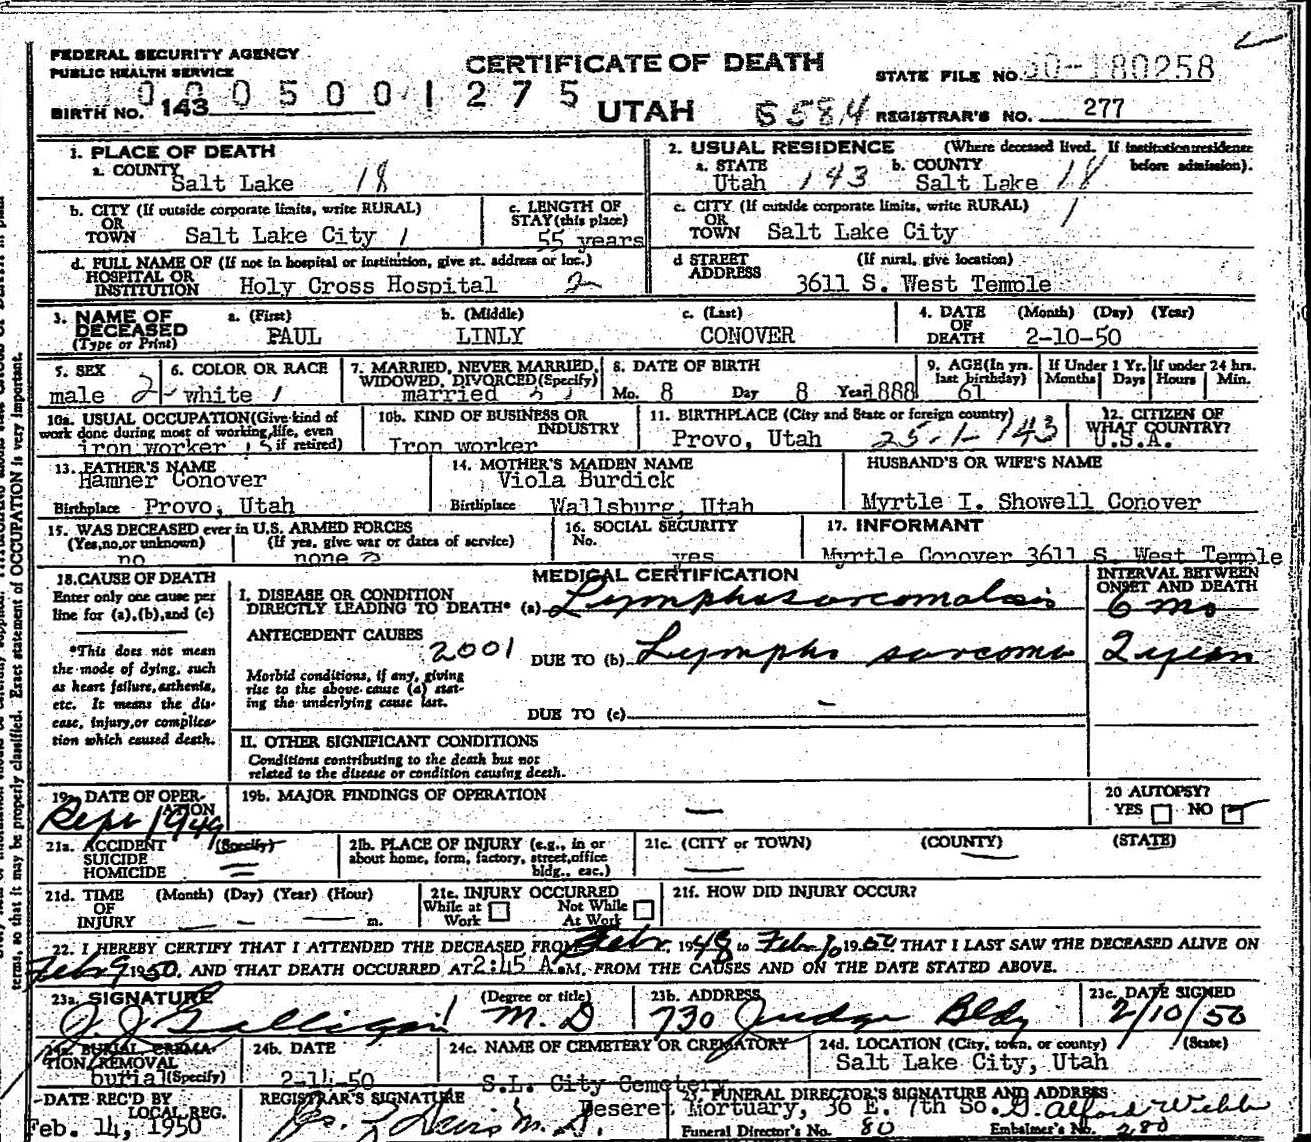 FEDERAL SECURITY AGENCY
PUBLIC HEALTH SERVICE
CERTIFICATE OF DEATH
STATE FILE NO. 50-180258
0005001275
BIRTH NO. 143
UTAH
5584
REGISTRAR'S NO. 277
1. PLACE OF DEATH
a. COUNTY
Salt Lake 18
2. USUAL RESIDENCE (Where deceased lived. If institution: residence before admission).
a. STATE
Utah 143
b. COUNTY
Salt Lake 18
b. CITY (If outside corporate limits, write RURAL)
OR
TOWN Salt Lake City 1
c. LENGTH OF
STAY (this place)
55 years
c. CITY (If outside corporate limits, write RURAL) 1
OR
TOWN Salt Lake City
d. FULL NAME OF (If not in hospital or institution, give st. address or loc.)
HOSPITAL OR
INSTITUTION Holy Cross Hospital 2
d STREET
ADDRESS
(If rural, give location)
3611 S. West Temple
3. NAME OF
DECEASED
(Type or Print)
a. (First)
PAUL
b. (Middle)
LINLY
c. (Last)
CONOVER
4. DATE
OF
DEATH
(Month) (Day) (Year)
2-10-50
5. SEX
male 2
6. COLOR OR RACE
white 1
7. MARRIED, NEVER MARRIED,
WIDOWED, DIVORCED (Specify)
married
8. DATE OF BIRTH
Mo. 8 Day 8 Year 1888
9. AGE (In yrs.
last birthday)
61
If Under 1 Yr.
Months Days
If under 24 hrs.
Hours Min.
10a. USUAL OCCUPATION (Give kind of
work done during most of working life, even
if retired)
iron worker
10b. KIND OF BUSINESS OR
INDUSTRY
Iron worker
11. BIRTHPLACE (City and State or foreign country)
Provo, Utah 25-1-143
12. CITIZEN OF
WHAT COUNTRY?
U.S.A.
13. FATHER'S NAME
Hamner Conover
Birthplace Provo, Utah
14. MOTHER'S MAIDEN NAME
Viola Burdick
Birthplace Wallsburg, Utah
HUSBAND'S OR WIFE'S NAME
Myrtle I. Showell Conover
15. WAS DECEASED ever in U.S. ARMED FORCES
(Yes, no, or unknown) (If yes, give war or dates of service)
no none
16. SOCIAL SECURITY
No.
yes
17. INFORMANT
Myrtle Conover 3611 S. West Temple
18. CAUSE OF DEATH
Enter only one cause per
line for (a), (b), and (c)
*This does not mean
the mode of dying, such
as heart failure, asthenia,
etc. It means the dis-
ease, injury, or complica-
tion which caused death.
MEDICAL CERTIFICATION
INTERVAL BETWEEN
ONSET AND DEATH
I. DISEASE OR CONDITION
DIRECTLY LEADING TO DEATH* (a) Lymphosarcomatosis 6 mo
ANTECEDENT CAUSES
2001 DUE TO (b) Lympho sarcoma 2 years
Morbid conditions, if any, giving
rise to the above cause (a) stat-
ing the underlying cause last.
DUE TO (c) -
II. OTHER SIGNIFICANT CONDITIONS
Conditions contributing to the death but not
related to the disease or condition causing death.
19a. DATE OF OPER-
ATION
Sept 1949
19b. MAJOR FINDINGS OF OPERATION
—
20 AUTOPSY?
YES NO
21a. ACCIDENT (Specify)
SUICIDE
HOMICIDE
21b. PLACE OF INJURY (e.g., in or
about home, form, factory, street, office
bldg., etc.)
21c. (CITY or TOWN) (COUNTY) (STATE)
21d. TIME (Month) (Day) (Year) (Hour)
OF
INJURY m.
21e. INJURY OCCURRED
While at Work Not While At Work
21f. HOW DID INJURY OCCUR?
22. I HEREBY CERTIFY THAT I ATTENDED THE DECEASED FROM Febr. 1948 to Feb 10 1950 THAT I LAST SAW THE DECEASED ALIVE ON
Feb 9 1950, AND THAT DEATH OCCURRED AT 2:45 A.M. FROM THE CAUSES AND ON THE DATE STATED ABOVE.
23a. SIGNATURE (Degree or title)
J J Galligan M.D
23b. ADDRESS
730 Judge Bldg
23c. DATE SIGNED
2/10/50
24a. BURIAL, CREMA-
TION, REMOVAL
burial (Specify)
24b. DATE
2-14-50
24c. NAME OF CEMETERY OR CREMATORY
S.L. City Cemetery
24d. LOCATION (City, town, or county) (State)
Salt Lake City, Utah
DATE REC'D BY
LOCAL REG.
Feb. 14, 1950
REGISTRAR'S SIGNATURE
25. FUNERAL DIRECTOR'S SIGNATURE AND ADDRESS
Deseret Mortuary, 36 E. 7th So. G. Alford Webb
Funeral Director's No. 80 Embalmer's No. 280
terms, so that it may be properly classified. Exact statement of OCCUPATION is very important.